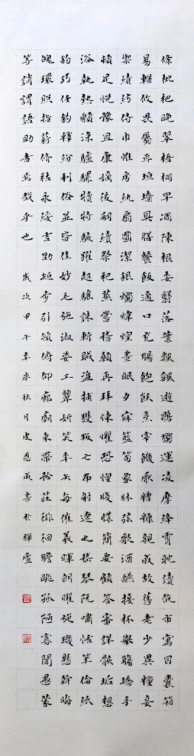 條枇杷晚翠梧桐早凋陳根委翳落葉飄颻遊鵾獨運凌摩絳霄耽讀翫市寓目囊箱
易輶攸畏屬耳垣牆具膳餐飯適口充腸飽飫烹宰飢厭糟糠親戚故舊老少異糧妾
禦績紡侍巾帷房紈扇圓潔銀燭煒煌晝眠夕寐藍筍象牀弦歌酒讌接杯舉觴矯手
頓足悅豫且康嫡後嗣續祭祀蒸嘗稽顙再拜悚懼恐惶箋牒簡要顧答審詳骸垢想
浴執熱願涼驢騾犢特駭躍超驤誅斬賊盜捕獲叛亡布射遼丸嵇琴阮嘯恬筆倫紙
鈞巧任釣釋紛利俗並皆佳妙毛施淑姿工顰妍笑年矢每催羲暉朗曜璇璣懸斡晦
魄環照指薪修祜永綏吉劭矩步引領俯仰廊廟束帶矜莊徘徊瞻眺孤陋寡聞愚蒙
等誚謂語助者焉哉乎也 歲次甲午年末秋月史恩成書於禪虛